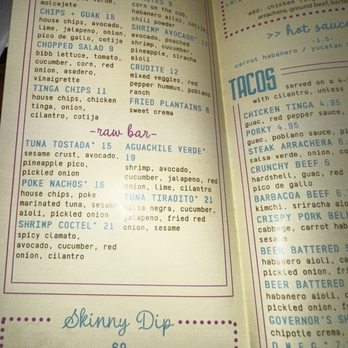 molcajete
CHIPS + GUAK 15
house chips, avocado,
lime, jalapeno, onion,
pico de gallo, cotija
CHOPPED SALAD 9
bibb lettuce, tomato,
cucumber, corn, red
onion, asadero,
vinaigrette
TINGA CHIPS 11
house chips, chicken
tinga, onion,
cilantro, cotija
habanero aioli,
chili powder
SHRIMP AVOCADO* 12
poached
shrimp, cucumber,
pineapple,
aioli, cilantro
CRUDITE 12
mixed veggies, red
pepper hummus, poblano
ranch
FRIED PLANTAINS 8
sweet crema
-raw bar-
TUNA TOSTADA* 15
sesame crust, avocado,
pineapple pico,
pickled onion
POKE NACHOS* 16
house chips, poke
marinated tuna, sesame
aioli, pickled onion
SHRIMP COCTEL* 21
spicy clamato,
avocado, cucumber, red
onion, cilantro
AGUACHILE VERDE*
19
shrimp, avocado,
cucumber, jalapeno, red
onion, lime, cilantro
TUNA TIRADITO* 21
salsa negra, cucumber,
jalapeno, fried red
onion, sesame
Skinny Dip
add: chicken
arrachera, ground beef,
>> hot sauce
carrot habanero / yucatan
TACOS
served on a 4-
with cilantro, unless
CHICKEN TINGA 4.95
guac, red pepper sauce,
PORKY 4.95
guac, poblano sauce, pi
STEAK ARRACHERA 6.
salsa verde, onion, co
CRUNCHY BEEF 6
hardshell, guac, red
pico de gallo
BARBACOA BEEF 6.
kimchi, sriracha aio
CRISPY PORK BEL
cabbage, carrot hab
sesame
BEER BATTERED
habanero aioli, c
pickled onion
BEER BATTERED
habanero aioli,
pickled onion, f
GOVERNOR'S SH
chipotle shr